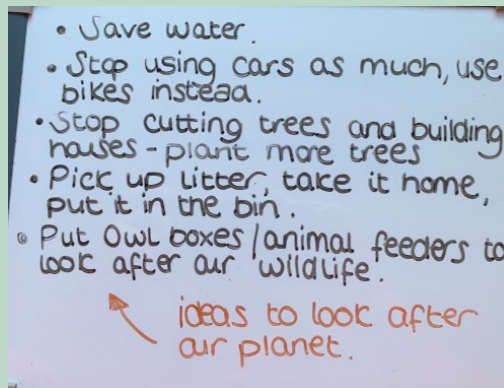 • Save water.
• Stop using cars as much, use
bikes instead.
• Stop cutting trees and building
houses - plant more trees
• Pick up litter, take it home,
put it in the bin.
• Put Owl boxes/animal feeders to
look after our wildlife.
ideas to look after
our planet.